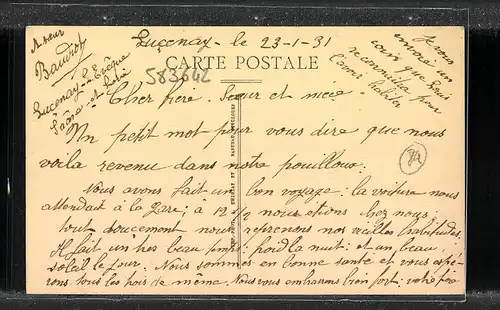 Luçenay - le 23-1-31
CARTE POSTALE
583642
Baudot
Luçenay-L'Evêque
Saône-et-Loire
Je vous
un
cour que
pour
Cher frère. Sœur et
Un petit mot pour vous dire que nous
voila revenu dans notre pouilloux.
Nous avons fait un bon voyage: la voiture nous
attendait à la gare; à 12 ½ nous étions chez nous,
tout doucement nous reprenons nos vieilles habitudes,
Il fait un tres beau froid la nuit: et un beau
soleil le jour. Nous sommes en bonne santé et vous espé-
rons tous les trois de même. Nous vous embrassons bien fort: votre